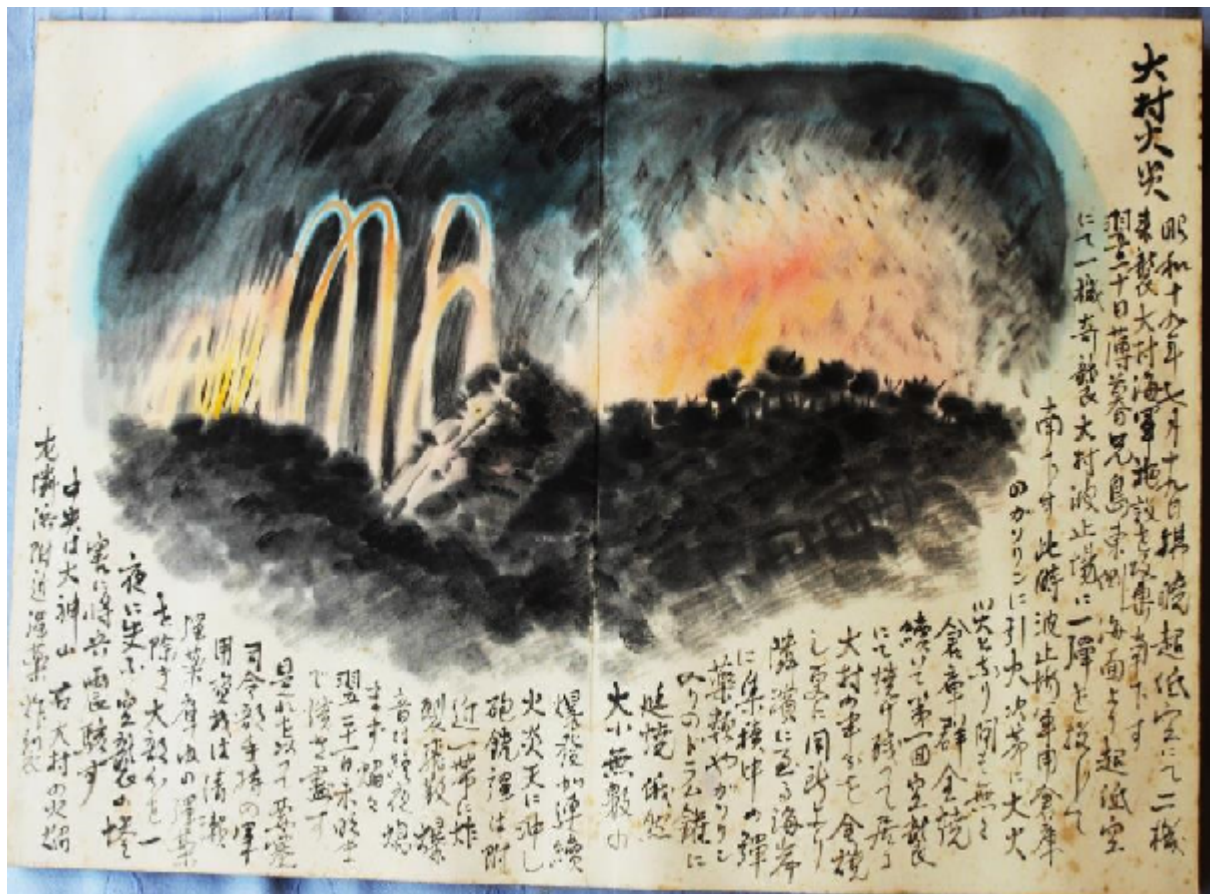 大村火災
昭和十九年七月十九日拂暁超低空にて二機
来襲大村海軍施設を攻撃南下す
翌二十日薄暮兄島東側海面より超低空
にて一機奇襲大村波止場に一弾を投じて
南下す此時波止場軍用倉庫
のガソリンに引火次第に大火
災となり間も無く
倉庫群全焼
続いて第一回空襲
にて焼け残って居る
大村の市街も全焼
し更に同所より
隣濱に至る海岸
に集積中の弾
薬類やガソリン
入りのドラム罐に
延焼俄然
大小無数の
爆発が連続
火炎天に沖し
砲銃弾は附
近一帯に炸
裂飛散爆
音は終夜熄
まず焔々
翌二十一日未明ま
で焼き盡す
是れを以って要塞
司令部手持の軍
用資材は清瀬
弾薬庫内の弾薬
を除き大部分を一
夜に失ふ空襲の惨
害に将兵震駭す
中央は大神山 右大村の火焔
左隣濱附近弾薬炸裂